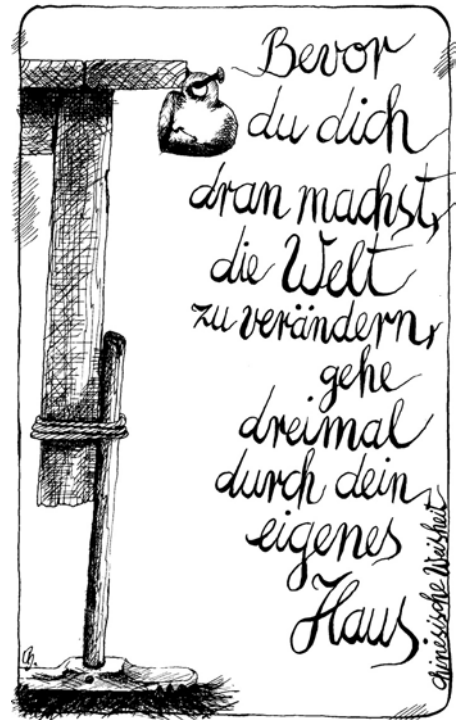 Bevor
du dich
dran machst,
die Welt
zu verändern,
gehe
dreimal
durch dein
eigenes
Haus
chinesische Weisheit